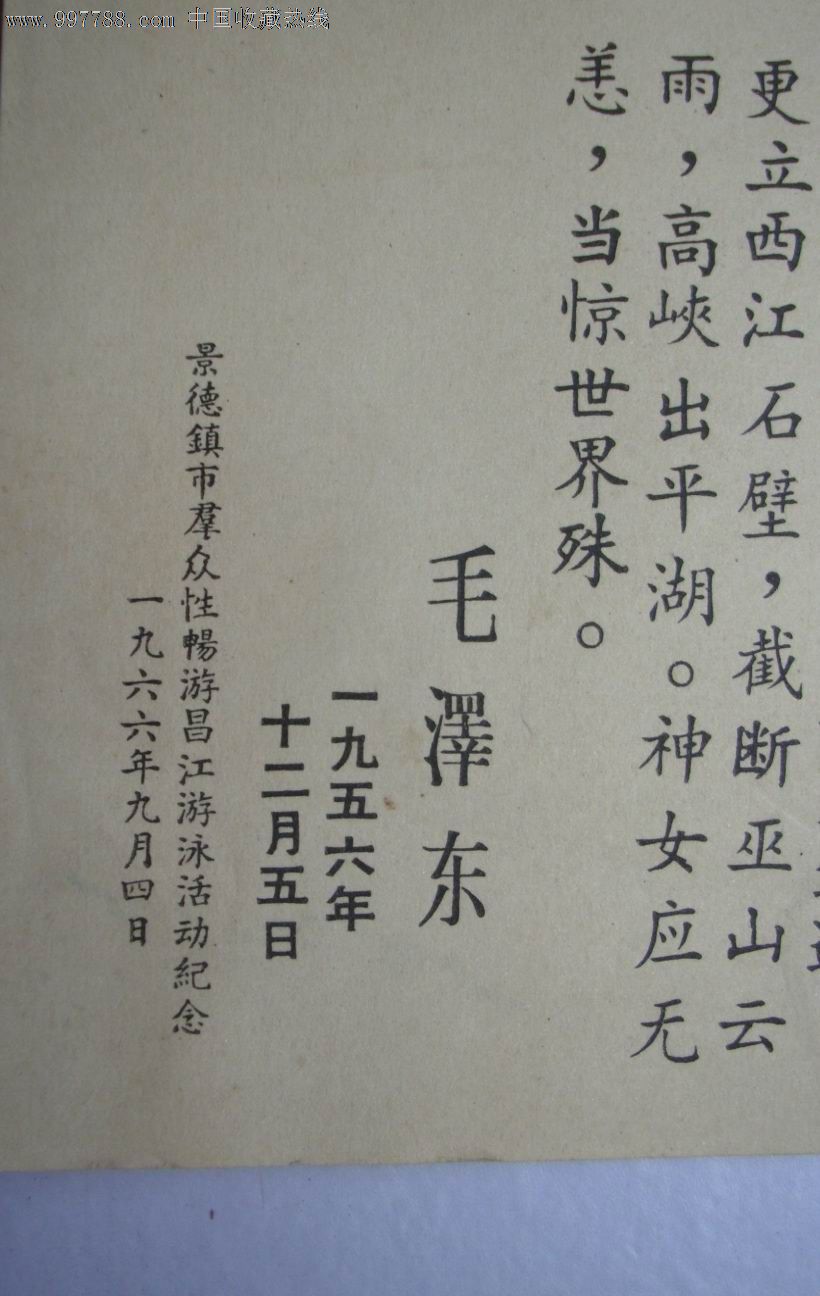 www.997788.com 中国收藏热线
更立西江石壁，截断巫山云
雨，高峽出平湖。神女应无
恙，当惊世界殊。
毛澤东
一九五六年
十二月五日
景德鎮市羣众性暢游昌江游泳活动紀念
一九六六年九月四日